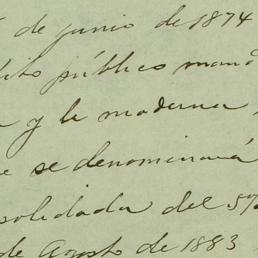 de junio de 1874
público
y la moderna
se denominará
solidada del 5%
de Agosto de 1883